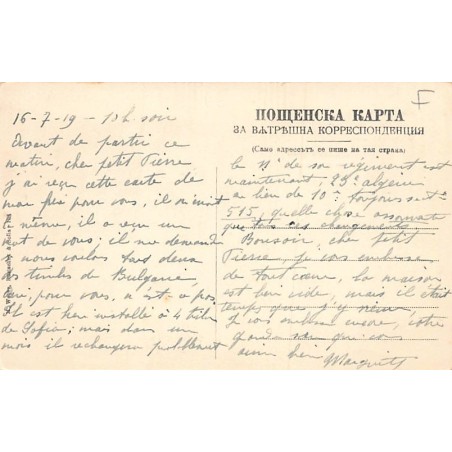 F
ПОЩЕНСКА КАРТА
ЗА ВѪТРѢШНА КОРРЕСПОНДЕНЦИЯ
(Само адрессътъ се пише на тая страна)
16-7-19 - 13h. soir
Avant de partir ce
matin, cher petit Pierre
j'ai reçu cette carte de
mon pour vous, il
même, il a reçu un
mot de vous; il me demande
nous voulons tous deux
des timbres de Bulgarie,
oui, pour vous, n'est ce pas
Il est bien installé à 4 kil
de Sofia; mais dans un
mois il rechangera probablement
le N° de son régiment est
maintenant, 23e algérien
au lieu de 10e toujours sect
515, quelle chose assommante
que tous ces changements
Bonsoir, cher petit
Pierre je vous embrasse
de tout cœur, la maison
est bien vide, mais il était
temps que j'y vienne,
Je vous embrasse encore, votre
grand qui vous
aime bien
Marguerite